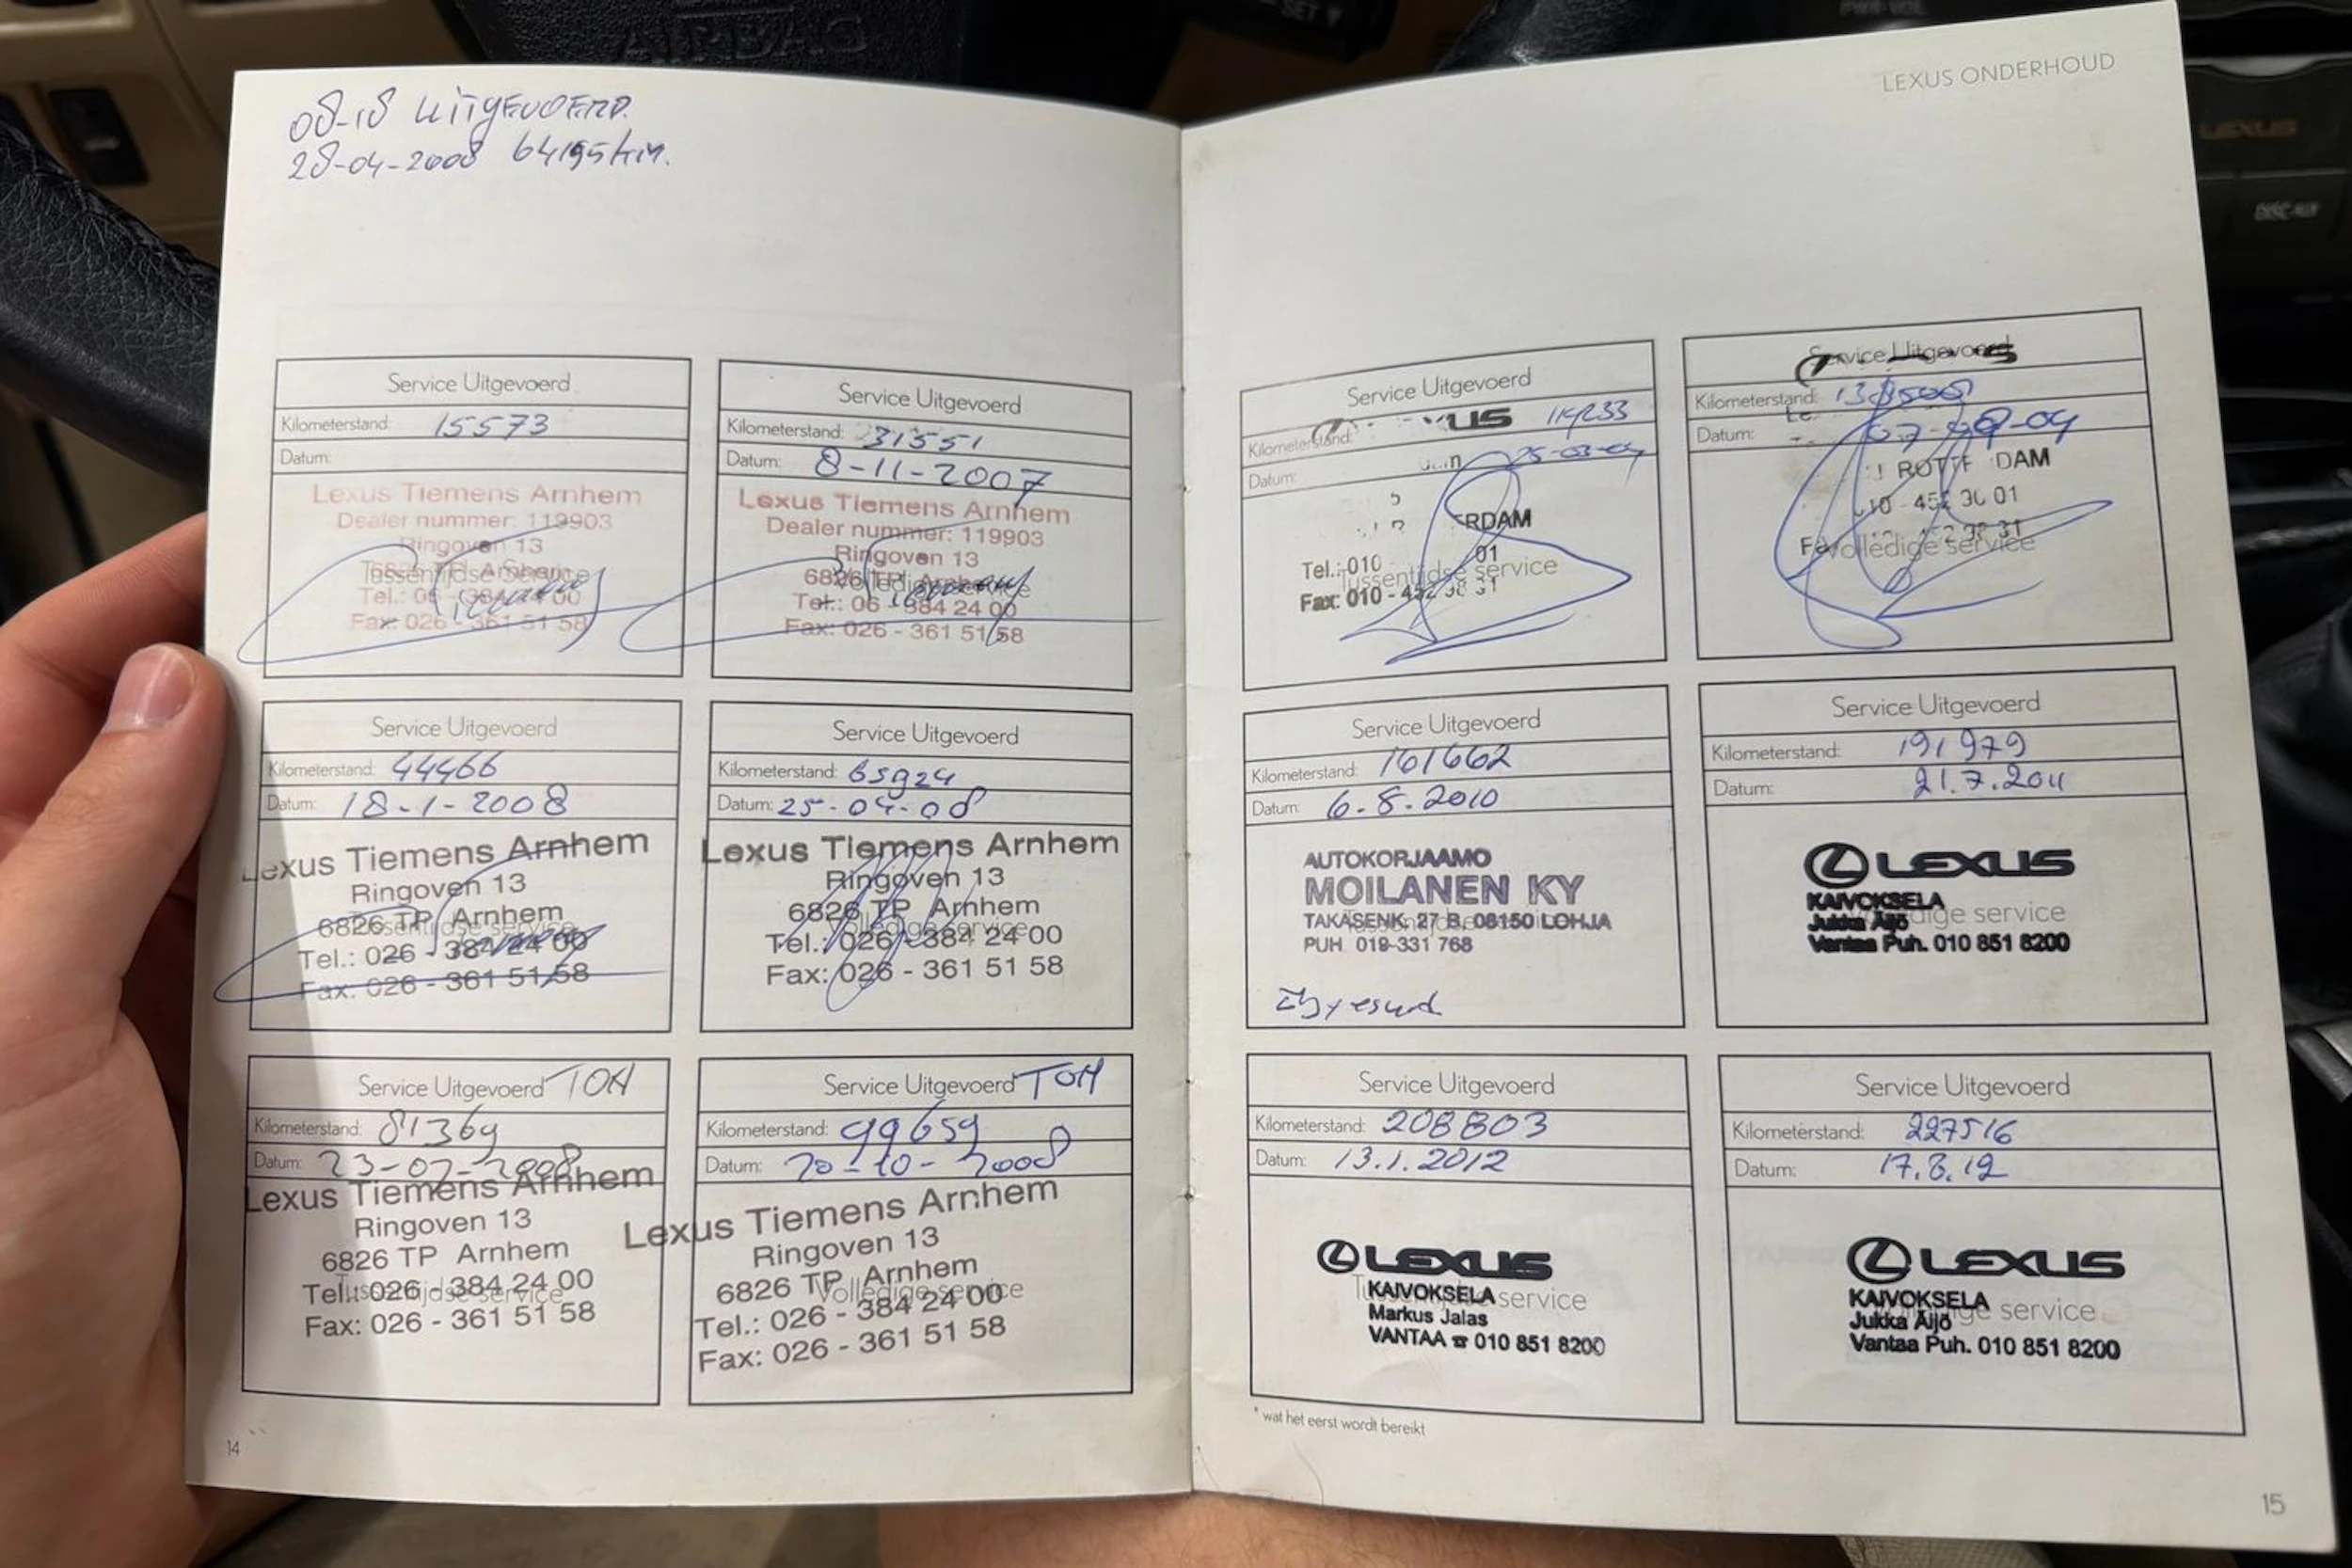 AIRBAG
SET
LEXUS
DISC·AUX
08-18 UITGEVOERD.
28-04-2008 64195 km.
Service Uitgevoerd
Kilometerstand: 15573
Datum:
Lexus Tiemens Arnhem
Dealer nummer: 119903
Ringoven 13
6826 TP Arnhem
Tussentijdse service
Tel.: 06 - 384 24 00
Fax: 026 - 361 51 58
Service Uitgevoerd
Kilometerstand: 31551
Datum: 8-11-2007
Lexus Tiemens Arnhem
Dealer nummer: 119903
Ringoven 13
6826 TP Arnhem
Volledige service
Tel.: 06 - 384 24 00
Fax: 026 - 361 51 58
Service Uitgevoerd
Kilometerstand: 44466
Datum: 18-1-2008
Lexus Tiemens Arnhem
Ringoven 13
6826 TP Arnhem
Tussentijdse service
Tel.: 026 - 384 24 00
Fax: 026 - 361 51 58
Service Uitgevoerd
Kilometerstand: 65924
Datum: 25-04-08
Lexus Tiemens Arnhem
Ringoven 13
6826 TP Arnhem
Volledige service
Tel.: 026 - 384 24 00
Fax: 026 - 361 51 58
Service Uitgevoerd TOM
Kilometerstand: 81369
Datum: 23-07-2008
Lexus Tiemens Arnhem
Ringoven 13
6826 TP Arnhem
Tel.: 026 - 384 24 00
Tussentijdse service
Fax: 026 - 361 51 58
Service Uitgevoerd TOM
Kilometerstand: 99659
Datum: 20-10-2008
Lexus Tiemens Arnhem
Ringoven 13
6826 TP Arnhem
Volledige service
Tel.: 026 - 384 24 00
Fax: 026 - 361 51 58
14
LEXUS ONDERHOUD
Service Uitgevoerd
Kilometerstand:
Datum: 25-03-09
RDAM
Tel.: 010 01
Tussentijdse service
Fax: 010 - 452 98 31
Service Uitgevoerd
Kilometerstand:
Datum:
ROTTE DAM
10 - 452 30 01
Volledige service
Service Uitgevoerd
Kilometerstand: 161662
Datum: 6.8.2010
AUTOKORJAAMO
MOILANEN KY
TAKASENK. 27 B, 08150 LOHJA
Tussentijdse service
PUH. 019-331 768
Service Uitgevoerd
Kilometerstand: 191979
Datum: 21.7.2011
LEXUS
KAIVOKSELA
Jukka Äijö
Volledige service
Vantaa Puh. 010 851 8200
Service Uitgevoerd
Kilometerstand: 208803
Datum: 13.1.2012
LEXUS
KAIVOKSELA
Tussentijdse service
Markus Jalas
VANTAA ☎ 010 851 8200
Service Uitgevoerd
Kilometerstand: 227516
Datum: 17.8.12
LEXUS
KAIVOKSELA
Volledige service
Jukka Äijö
Vantaa Puh. 010 851 8200
* wat het eerst wordt bereikt
15